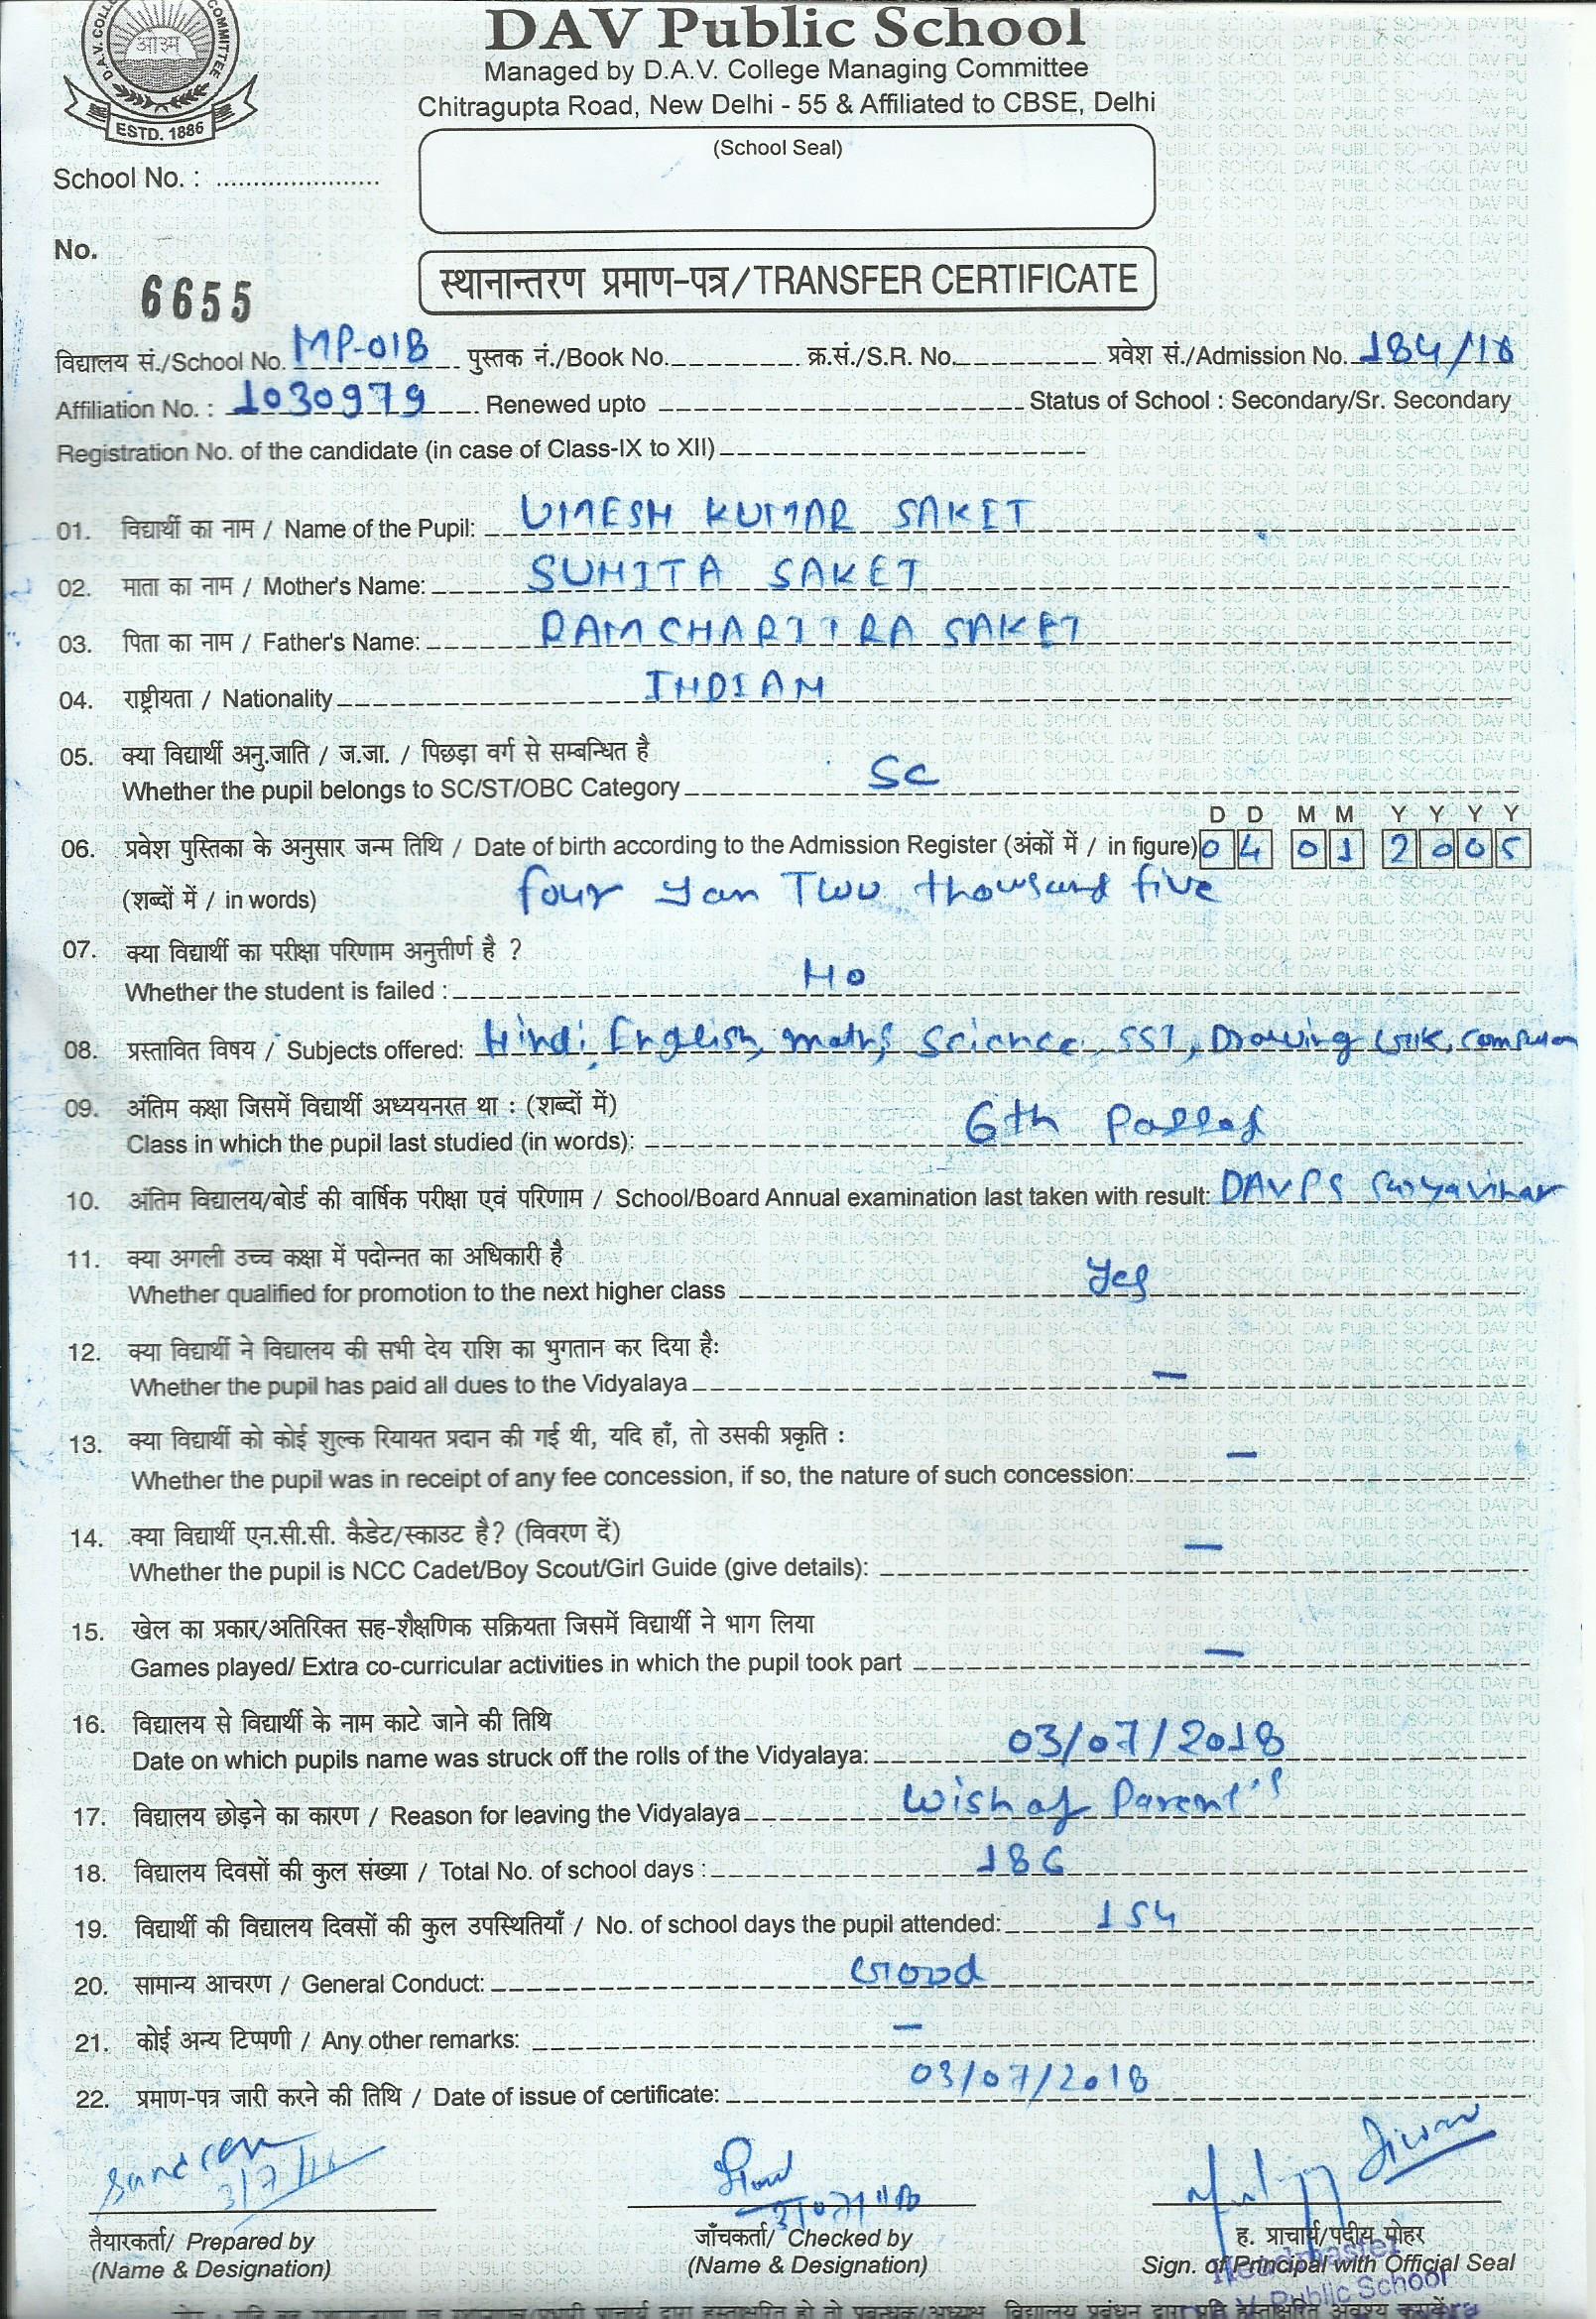 D.A.V. COLL COMMITTEE
ओ३म्
ESTD. 1886
DAV Public School
Managed by D.A.V. College Managing Committee
Chitragupta Road, New Delhi - 55 & Affiliated to CBSE, Delhi
(School Seal)
School No. :
No.
6655
स्थानान्तरण प्रमाण-पत्र/TRANSFER CERTIFICATE
विद्यालय सं./School No. MP-018 पुस्तक नं./Book No. क्र.सं./S.R. No. प्रवेश सं./Admission No. 184/18
Affiliation No. : 1030979 Renewed upto Status of School : Secondary/Sr. Secondary
Registration No. of the candidate (in case of Class-IX to XII)
01. विद्यार्थी का नाम / Name of the Pupil: UMESH KUMAR SAKET
02. माता का नाम / Mother's Name: SUNITA SAKET
03. पिता का नाम / Father's Name: RAMCHARITRA SAKET
04. राष्ट्रीयता / Nationality INDIAN
05. क्या विद्यार्थी अनु.जाति / ज.जा. / पिछड़ा वर्ग से सम्बन्धित है
Whether the pupil belongs to SC/ST/OBC Category SC
D D M M Y Y Y Y
06. प्रवेश पुस्तिका के अनुसार जन्म तिथि / Date of birth according to the Admission Register (अंकों में / in figure) 04 01 2005
(शब्दों में / in words) four Jan Two thousand five
07. क्या विद्यार्थी का परीक्षा परिणाम अनुत्तीर्ण है ?
Whether the student is failed : No
08. प्रस्तावित विषय / Subjects offered: Hindi, English, maths, Science, SST, Drawing G.K, Computer
09. अंतिम कक्षा जिसमें विद्यार्थी अध्ययनरत था : (शब्दों में)
Class in which the pupil last studied (in words): 6th Passed
10. अंतिम विद्यालय/बोर्ड की वार्षिक परीक्षा एवं परिणाम / School/Board Annual examination last taken with result: DAV PS Suryavihar
11. क्या अगली उच्च कक्षा में पदोन्नत का अधिकारी है
Whether qualified for promotion to the next higher class Yes
12. क्या विद्यार्थी ने विद्यालय की सभी देय राशि का भुगतान कर दिया है:
Whether the pupil has paid all dues to the Vidyalaya —
13. क्या विद्यार्थी को कोई शुल्क रियायत प्रदान की गई थी, यदि हाँ, तो उसकी प्रकृति :
Whether the pupil was in receipt of any fee concession, if so, the nature of such concession: —
14. क्या विद्यार्थी एन.सी.सी. कैडेट/स्काउट है? (विवरण दें)
Whether the pupil is NCC Cadet/Boy Scout/Girl Guide (give details): —
15. खेल का प्रकार/अतिरिक्त सह-शैक्षणिक सक्रियता जिसमें विद्यार्थी ने भाग लिया
Games played/ Extra co-curricular activities in which the pupil took part —
16. विद्यालय से विद्यार्थी के नाम काटे जाने की तिथि
Date on which pupils name was struck off the rolls of the Vidyalaya: 03/07/2018
17. विद्यालय छोड़ने का कारण / Reason for leaving the Vidyalaya Wish of Parent's
18. विद्यालय दिवसों की कुल संख्या / Total No. of school days : 186
19. विद्यार्थी की विद्यालय दिवसों की कुल उपस्थितियाँ / No. of school days the pupil attended: 154
20. सामान्य आचरण / General Conduct: Good
21. कोई अन्य टिप्पणी / Any other remarks: —
22. प्रमाण-पत्र जारी करने की तिथि / Date of issue of certificate: 03/07/2018
3/7/18
तैयारकर्ता/ Prepared by
(Name & Designation)
जाँचकर्ता/ Checked by
(Name & Designation)
ह. प्राचार्य/पदीय मोहर
Sign. of Principal with Official Seal
Headmaster
Public School